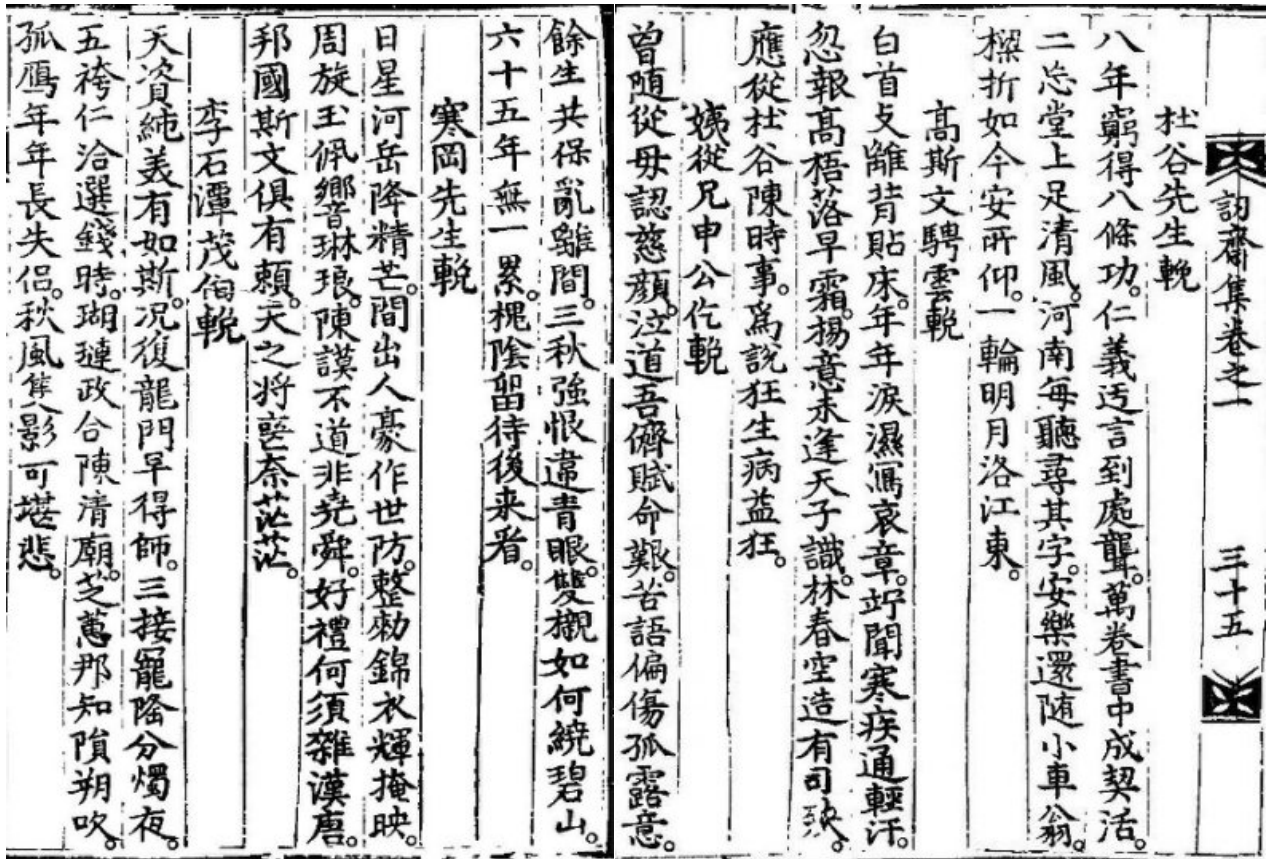 訒齋集卷之一 三十五
杜谷先生輓
八年窮得八條功。仁義迃言到處聾。萬卷書中成契活。
二忘堂上足清風。河南每聽尋其字。安樂還随小車翁。
樑折如今安所仰。一輪明月洛江東。
高斯文騁雲輓
白首支離背貼床。年年淚濕寫哀章。竚聞寒疾通輕汗。
忽報高梧落早霜。揚意未逢天子識。林春空造有司
應從杜谷陳時事。爲說狂生病益狂。
姨從兄申公仡輓
曽随從母認慈顔。泣道吾儕賦命艱。苦語偏傷孤露意。
餘生共保亂離間。三秋強恨違青眼。雙櫬如何繞碧山。
六十五年無一累。槐陰留待後来看。
寒岡先生輓
日星河岳降精芒。間出人豪作世防。整勑錦衣輝掩映。
周旋玉佩響琳琅。陳謨不道非堯舜。好禮何須雜漢唐。
邦國斯文俱有賴。天之將喪奈茫茫。
李石潭茂伯輓
天資純美有如斯。况復龍門早得師。三接寵隆分燭夜。
五袴仁洽選錢時。瑚璉政合陳清廟。芝蕙那知隕朔吹。
孤鴈年年長失侶。秋風隻影可堪悲。